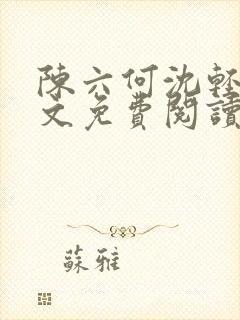 陳六何沈輕
文免費閱讀
蘇雅